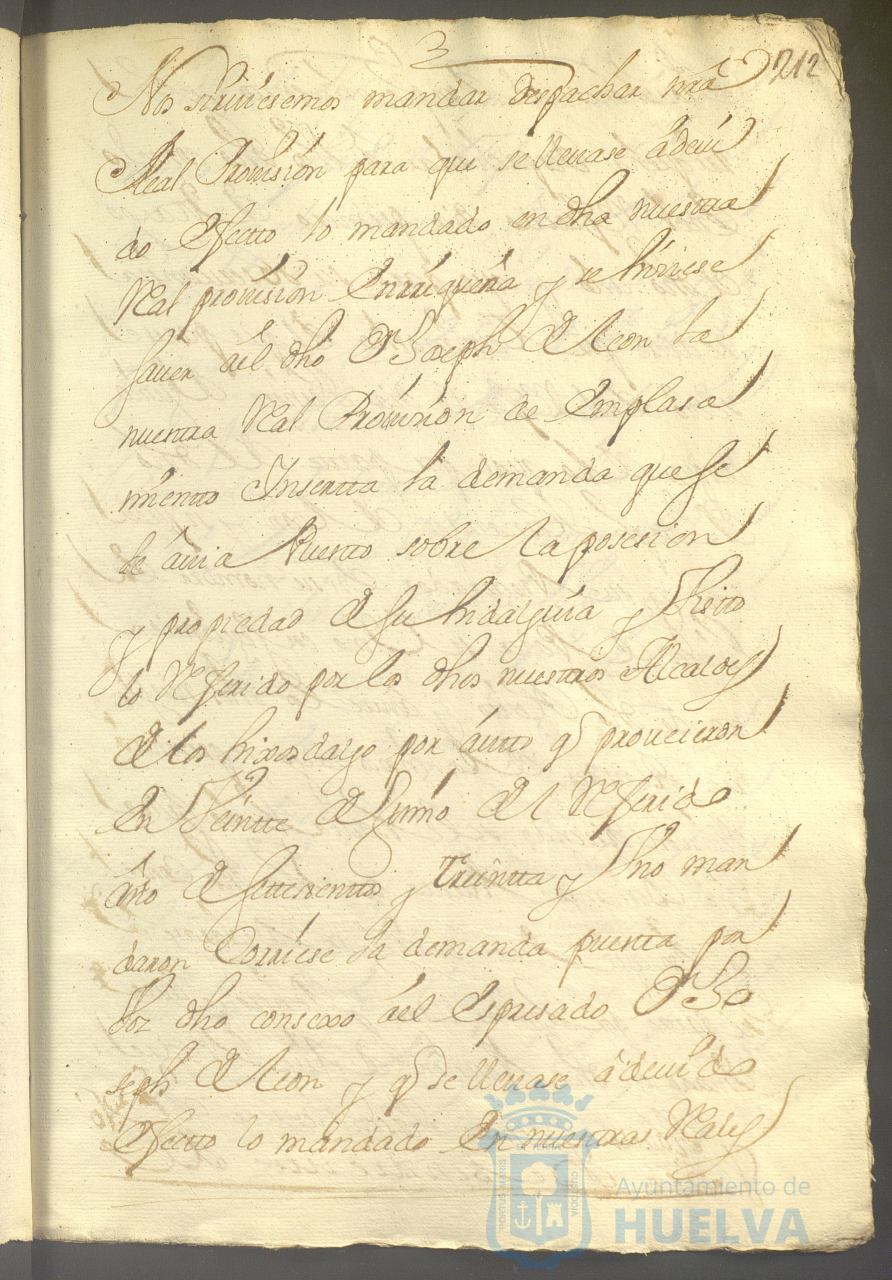 3
212
Nos sirviesemos mandar despachar nrã
Real Provision para que se lleuase âdeui
do Efectto lo mandado en dha nuestra
Real provision Enrriqueña y se hiciese
sauer âel dho Dn Joseph de Leon la
nuestra Real Provision de Emplasa
mientto Insertta la demanda que se
le âuia Puesto sobre la posesion
y propiedad de su hidalguia y Visto
lo Referido por los dhos nuestros Alcaldes
de los hixosdalgo por âutto q̃ proueieron
En Veintte de Junio del Referido
año de settesientos y treintta y Vno man
daron Corriese la demanda puesta por
Voz dho consexo âel Espresado Dn Jo
seph de Leon y q̃ se lleuase âdeuido
Efectto lo mandado En nuestras Reales
PORTUS MARIS
CUSTODIA
Ayuntamiento de
HUELVA